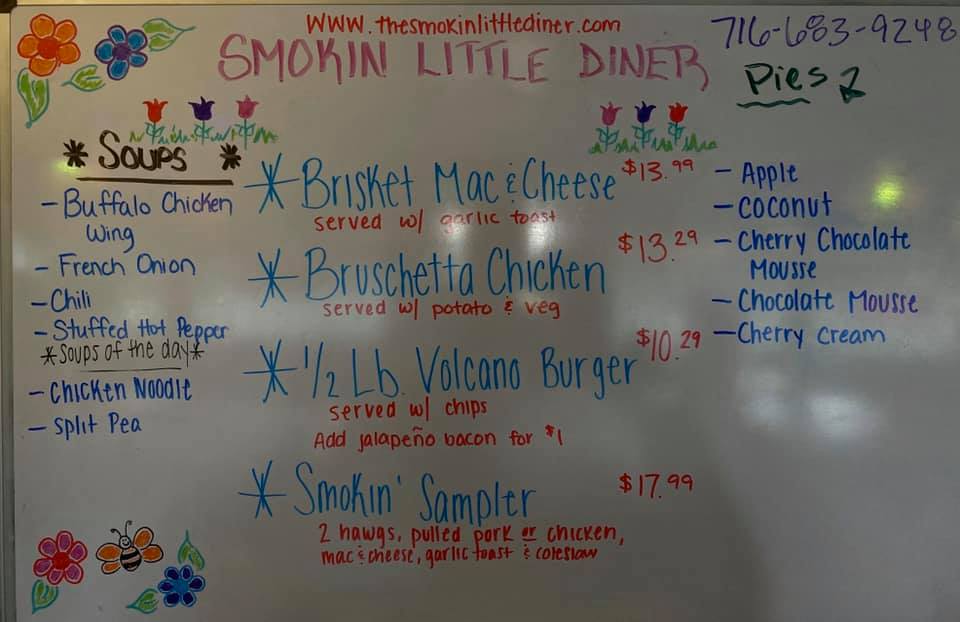 www.thesmokinlittlediner.com
716-683-9248
SMOKIN LITTLE DINER
Pies
* Soups *
- Buffalo Chicken
Wing
- French Onion
- Chili
- Stuffed Hot Pepper
*Soups of the day*
- Chicken Noodle
- Split Pea
* Brisket Mac & Cheese $13.99
served w/ garlic toast
* Bruschetta Chicken $13.29
served w/ potato & veg
* 1/2 Lb. Volcano Burger $10.29
served w/ chips
Add jalapeño bacon for $1
* Smokin' Sampler $17.99
2 hawgs, pulled pork or chicken,
mac & cheese, garlic toast & coleslaw
- Apple
- Coconut
- Cherry Chocolate
Mousse
- Chocolate Mousse
- Cherry Cream